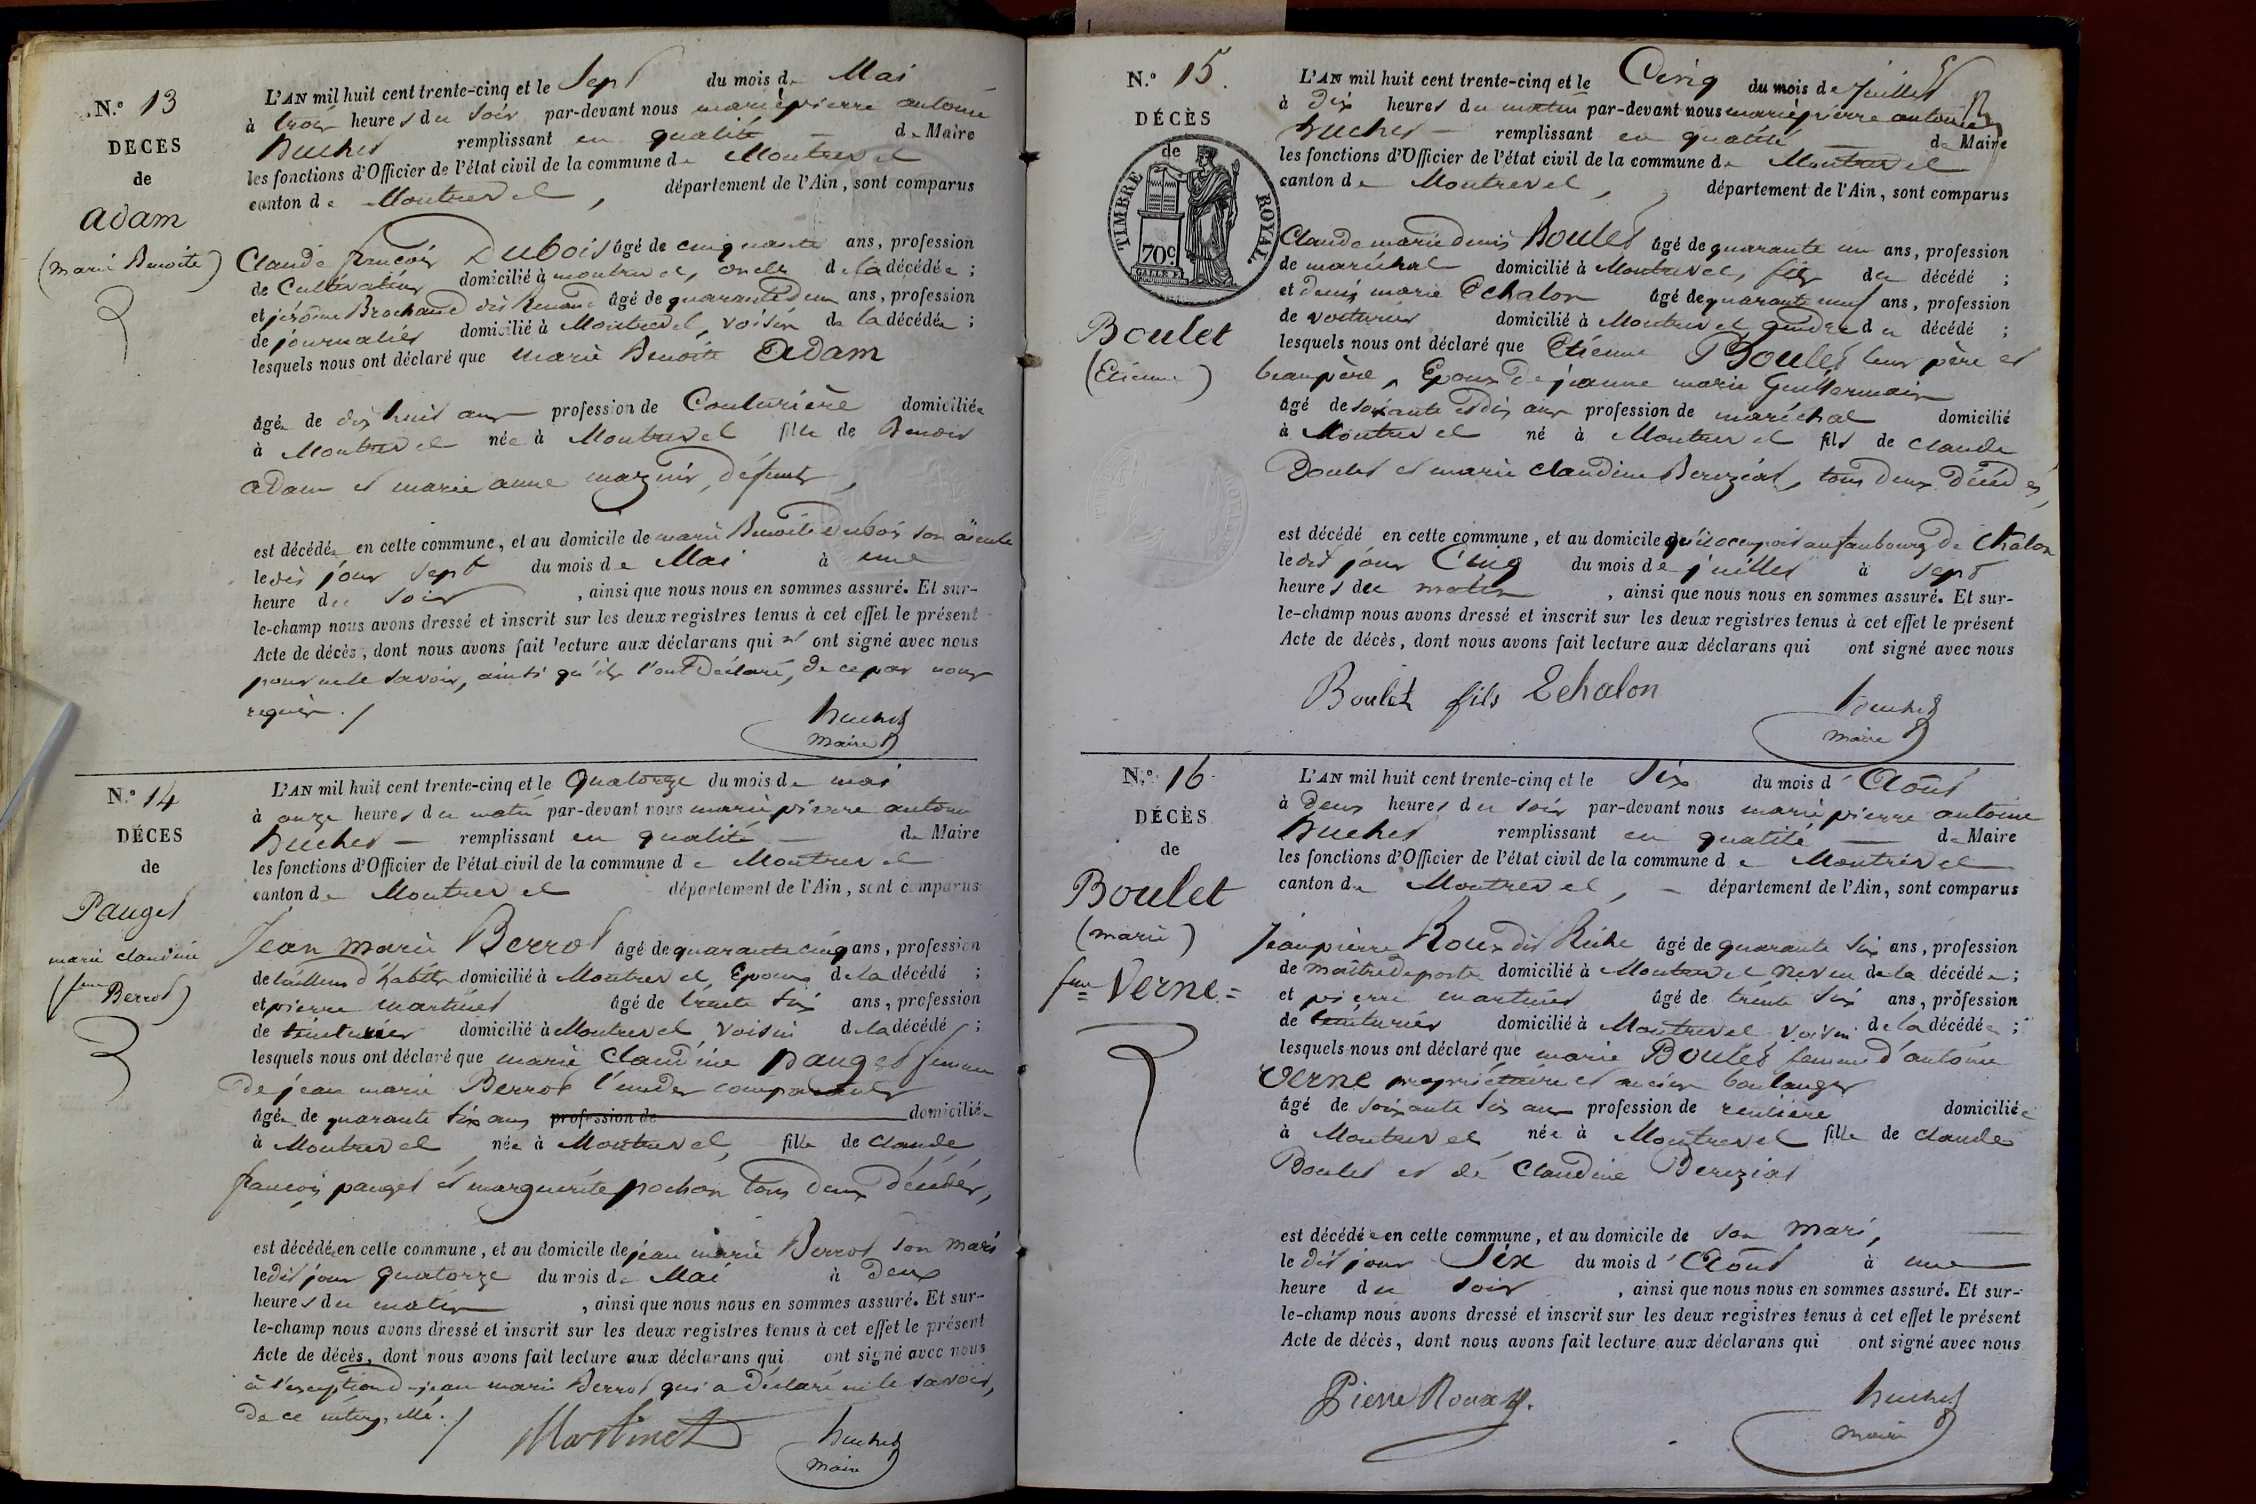 N.º 13
DÉCÈS
de
Adam
(marie Benoite)
L'AN mil huit cent trente-cinq et le Sept du mois de Mai
à trois heures du soir par-devant nous marie pierre antoine
huchet remplissant en qualité de Maire
les fonctions d'Officier de l'état civil de la commune de Montrevel
canton de Montrevel, département de l'Ain, sont comparus
Claude françois Dubois âgé de cinquante ans, profession
de Cultivateur domicilié à montrevel, oncle de la décédée;
et jérôme Brochand dit Renaud âgé de quarante deux ans, profession
de journalier domicilié à Montrevel, voisin de la décédée;
lesquels nous ont déclaré que marie Benoite Adam
âgée de dix huit ans profession de Couturière domiciliée
à Montrevel née à Montrevel fille de Benoit
adam et marie anne, défunts,
est décédée en cette commune, et au domicile de marie Benoite Dubois son aieule
ledit jour sept du mois de Mai à une
heure du soir, ainsi que nous nous en sommes assuré. Et sur-
le-champ nous avons dressé et inscrit sur les deux registres tenus à cet effet le présent
Acte de décès, dont nous avons fait lecture aux déclarans qui n' ont signé avec nous
pour ne le savoir, ainsi qu'ils l'ont déclaré, de ce par nous
requis./
huchet
maire
N.º 14
DÉCES
de
Pauget
marie claudine
(feme Berrod)
L'AN mil huit cent trente-cinq et le Quatorze du mois de mai
à onze heures du matin par-devant nous marie pierre antoine
huchet remplissant en qualité de Maire
les fonctions d'Officier de l'état civil de la commune de Montrevel
canton de Montrevel département de l'Ain, sont comparus
Jean marie Berrod âgé de quarante cinq ans, profession
de tailleur d'habits domicilié à Montrevel, Epoux de la décédé;
et pierre martinet âgé de trente six ans, profession
de teinturier domicilié à Montrevel voisin de la décédé;
lesquels nous ont déclaré que marie claudine pauget femme
de jean marie Berrod l'un des comparants
âgée de quarante six ans profession de domiciliée
à Montrevel, née à Montrevel, fille de claude
françois pauget et marguerite pochon tous deux décédés,
est décédée en cette commune, et au domicile de jean marie Berrod son mari
ledit jour quatorze du mois de Mai à deux
heures du matin, ainsi que nous nous en sommes assuré. Et sur-
le-champ nous avons dressé et inscrit sur les deux registres tenus à cet effet le présent
Acte de décès, dont nous avons fait lecture aux déclarans qui ont signé avec nous
à l'exception de jean marie Berrod qui a déclaré ne le savoir,
de ce interpellé./
Martinet
huchet
maire
N.º 15.
DÉCÈS
de
TIMBRE ROYAL
70c.
Boulet
(Etienne)
L'AN mil huit cent trente-cinq et le Cinq du mois de Juillet
à dix heures du matin par-devant nous marie pierre antoine
huchet remplissant en qualité de Maire
les fonctions d'Officier de l'état civil de la commune de Montrevel
canton de Montrevel, département de l'Ain, sont comparus
Claude marie denis Boulet âgé de quarante un ans, profession
de maréchal domicilié à Montrevel, fils du décédé;
et denis marie Echalon âgé de quarante neuf ans, profession
de voiturier domicilié à Montrevel gendre du décédé;
lesquels nous ont déclaré que Etienne Boulet leur père et
beaupère, Epoux de jeanne marie Guillermain
âgé de soixante et dix ans profession de maréchal domicilié
à Montrevel né à Montrevel fils de claude
Boulet et marie claudine Bereziat, tous deux décédés,
est décédé en cette commune, et au domicile qu'il occupoit au faubourg de Chalon
ledit jour Cinq du mois de juillet à sept
heures du matin, ainsi que nous nous en sommes assuré. Et sur-
le-champ nous avons dressé et inscrit sur les deux registres tenus à cet effet le présent
Acte de décès, dont nous avons fait lecture aux déclarans qui ont signé avec nous
Boulet fils Echalon
huchet
maire
N.º 16
DÉCÈS
de
Boulet
(marie)
feme Verne
L'AN mil huit cent trente-cinq et le Six du mois d'Août
à deux heures du soir par-devant nous marie pierre antoine
huchet remplissant en qualité de Maire
les fonctions d'Officier de l'état civil de la commune de Montrevel
canton de Montrevel, département de l'Ain, sont comparus
Jean pierre Roux dit Riche âgé de quarante six ans, profession
de maître de poste domicilié à Montrevel neveu de la décédée;
et pierre martinet âgé de trente six ans, profession
de teinturier domicilié à Montrevel voisin de la décédée;
lesquels nous ont déclaré que marie Boulet femme d'antoine
Verne propriétaire et ancien boulanger
âgé de soixante six ans profession de rentière domiciliée
à Montrevel née à Montrevel fille de claude
Boulet et de Claudine Bereziat
est décédée en cette commune, et au domicile de son mari,
le dit jour Six du mois d'Août à une
heure du soir, ainsi que nous nous en sommes assuré. Et sur-
le-champ nous avons dressé et inscrit sur les deux registres tenus à cet effet le présent
Acte de décès, dont nous avons fait lecture aux déclarans qui ont signé avec nous
Pierre Roux
huchet
maire